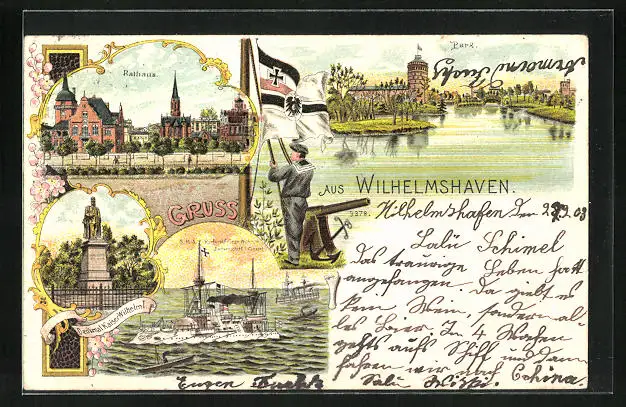 Rathaus.
Park.
GRUSS
AUS WILHELMSHAVEN.
Denkmal Kaiser Wilhelm I
9378.
Wilhelmshafen den 2 9 03
Salü Schimel
Das traurige Leben hatt
angefangen. Da giebt es
kein Wein, sondern al-
les Bier. In 4 Wochen
gehts aufs Schiff und dann
fahren wir nach China.
Salü
Eugen